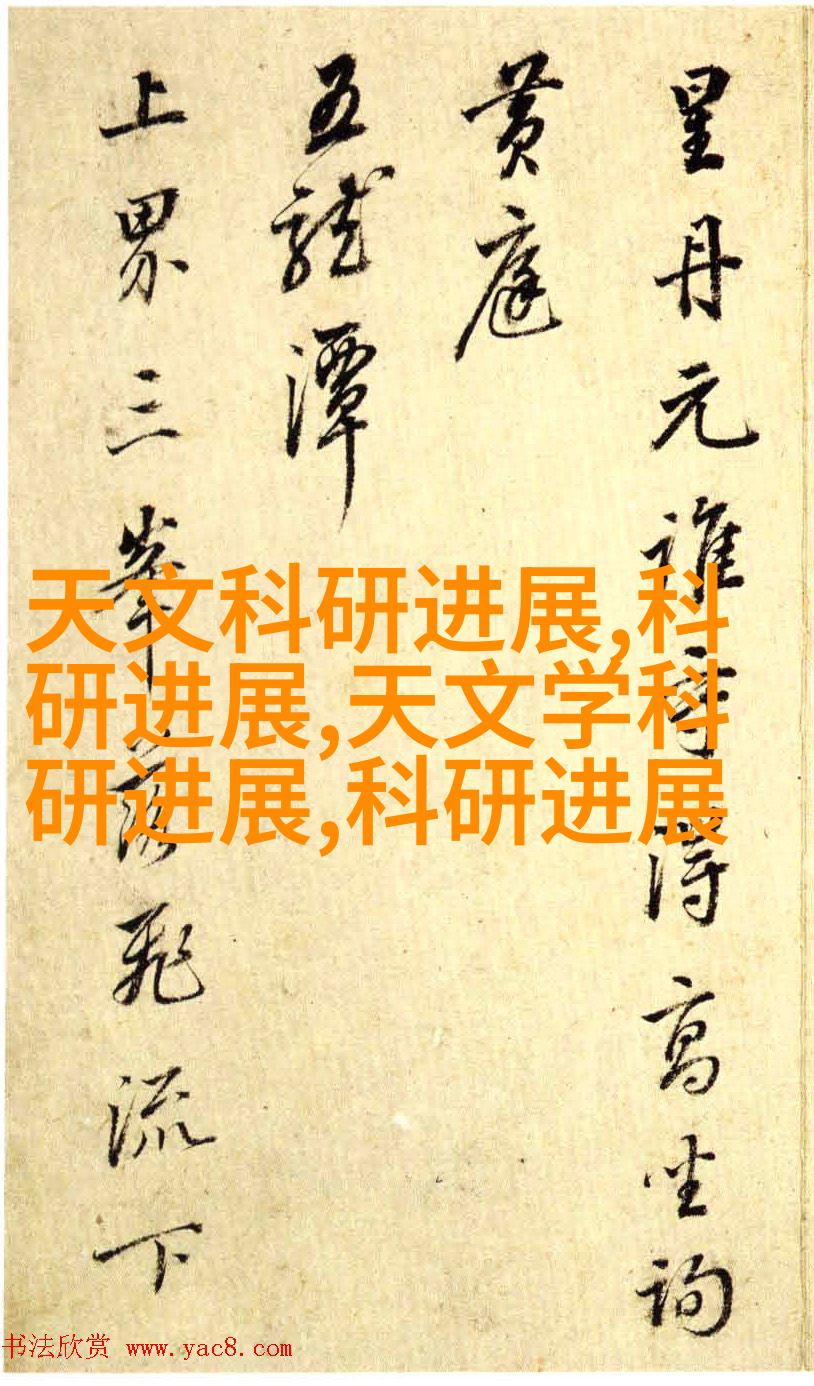 星丹元誰得高坐詢
黄庭
五龍潭
上界三峯落飛流下
天文科研进展,科
研进展,天文学科
研进展,科研进展
书法欣赏 www.yac8.com